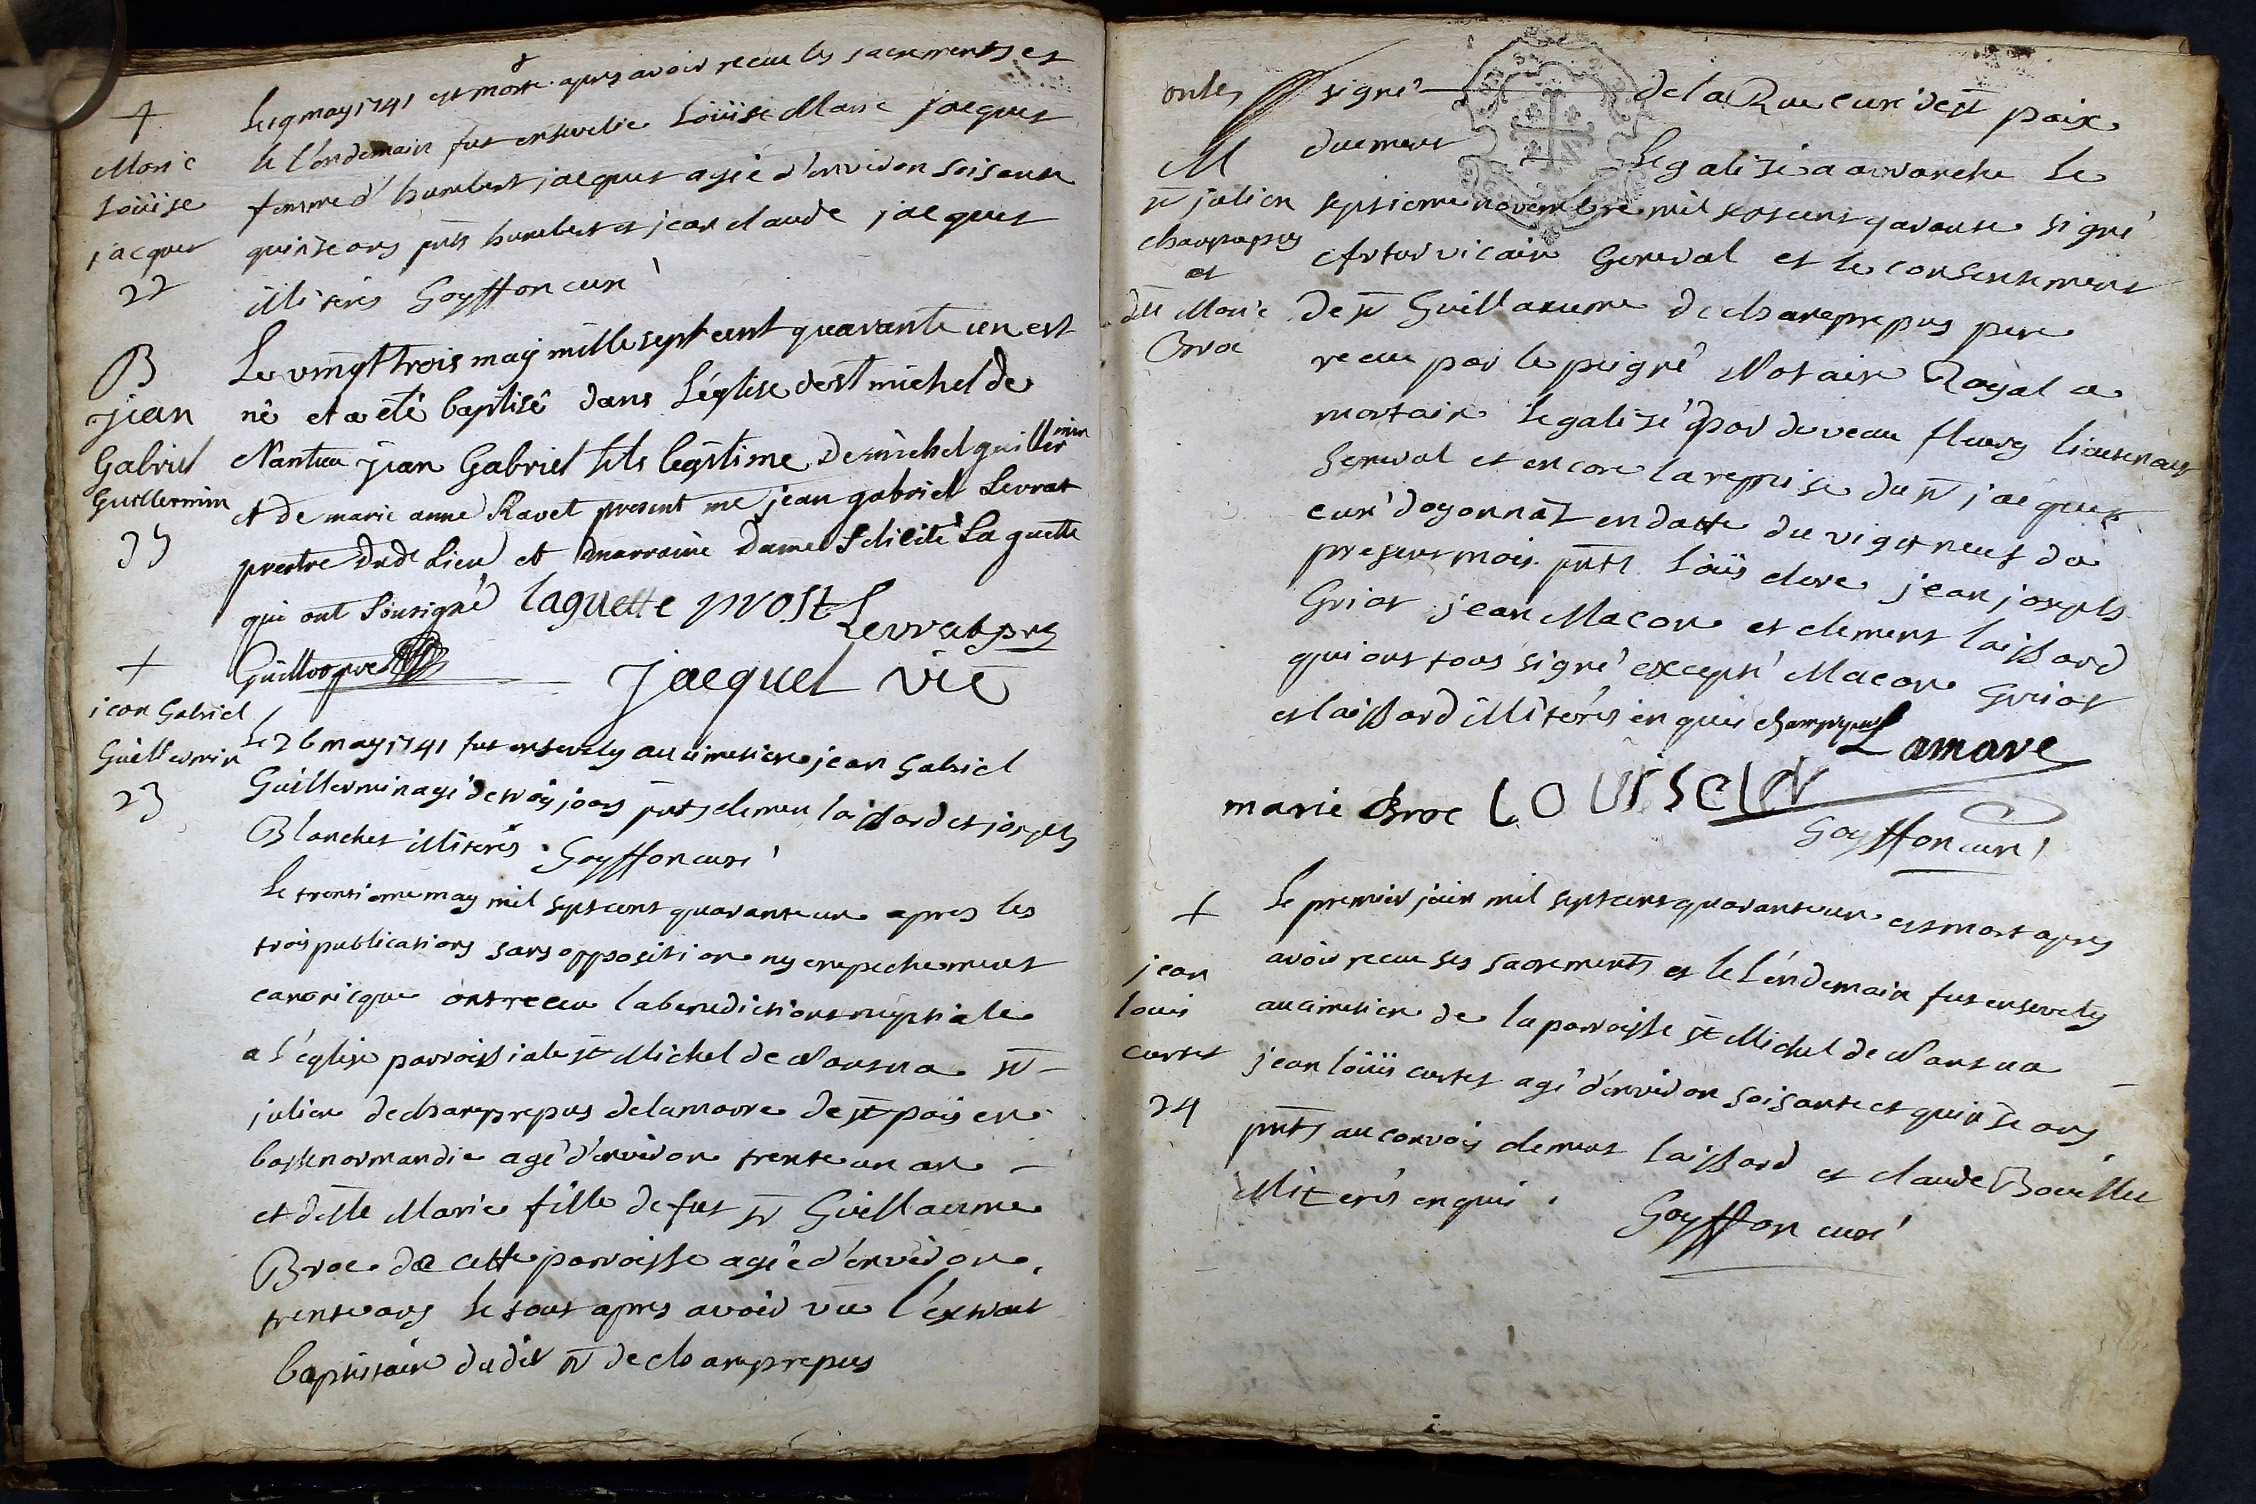 +
Marie
Loüise
jacquet
22
Le 19 may 1741 est morte apres avoir receu les sacrements et
le l'endemain fut ensevelie Loüise Marie jacquet
femme d'humbert jacquet agée d'environ soisante
quinse ans pnts humbert et jean claude jacquet
illiterés Goyffon curé
B
jean
Gabriel
Guillermin
33
Le vingt trois may mille sept cent quarante un est
né et a été baptisé dans L'église de st michel de
Nantua jean Gabriel fils legitime de michel guillermin
et de marie anne Ravet present mre jean gabriel Levrat
prestre dud lieu et marraine dame felicité Laguette
qui ont sousigné laguette prost Levrat pre
jacquet vic
+
jean Gabriel
Guillermin
23
Le 26 may 1741 fut ensevely au cimetiere jean Gabriel
Guillermin agé de trois jours pnts clement laissard et joseph
Blanchet illiterés Goyffon curé
Le trentieme may mil sept cent quarante un apres les
trois publications sans opposition ny empechement
canonique ont receu la benediction nuptiale
a l'église parroissiale st Michel de Nantua sr
julien de champrepus delamarre de st pois en
basse normandie agé d'environ trente un an
et dlle Marie fille de fut sr Guillaume
Broc de cette parroisse agée d'environ
trente ans le tout apres avoir vu l'extrait
baptistaire dudit sr de champrepus
M
sr julien
champrepus
et
dlle Marie
Broc
signé de la Rue curé de st poix
duement Legalisé a avranche le
septieme novembre mil sept cent quarante signé
Artur vicaire General et le consentement
de sr Guillaume de champrepus pere
receu par le pigné Notaire Royal a
mortain legalisé par duveau fleury lieutenant
General et encore la remise du sr jacquet
curé d'oyonnaz en datte du vigt neuf du
present mois pnts Loüis clere jean joseph
Griot jean Macon et clement laissard
qui ont tous signé excepté Macon Griot
et laissard illiterés enquis champrepus Lamare
marie Broc LOUISCLER
Goyffon curé
+
jean
louis
curtet
24
Le premier juin mil sept cent quarante un est mort apres
avoir receu ses sacrements et le l'endemain fut ensevely
au cimetiere de la parroisse st Michel de Nantua
jean loüis curtet agé d'environ soisante et quinse ans
pnts au convoy clement laissard et claude Bouillet
illiterés enquis. Goyffon curé